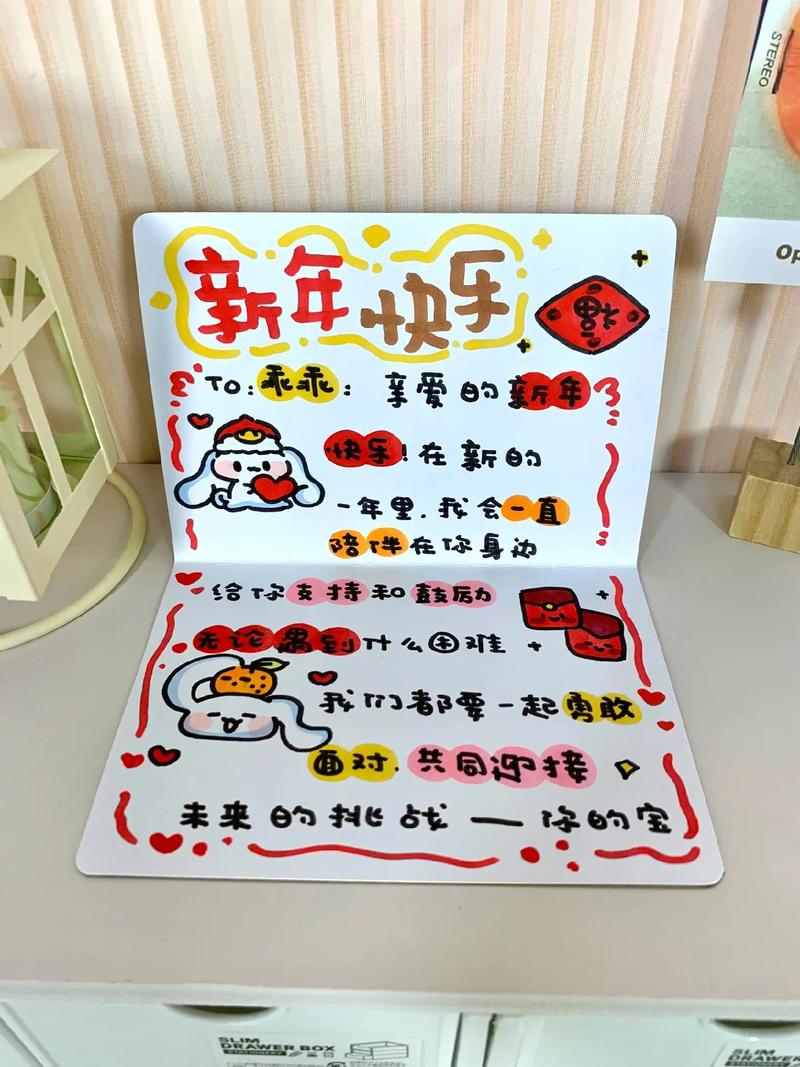 新年快乐
福
TO:乖乖: 亲爱的新年
快乐!在新的
一年里.我会一直
陪伴在你身边
给你支持和鼓励
无论遇到什么困难
我们都要一起勇敢
面对.共同迎接
未来的挑战 — 你的宝
STEREO
Op
SLIM
DRAWER BOX
STATIONERY
SLIM
DRAWER BOX